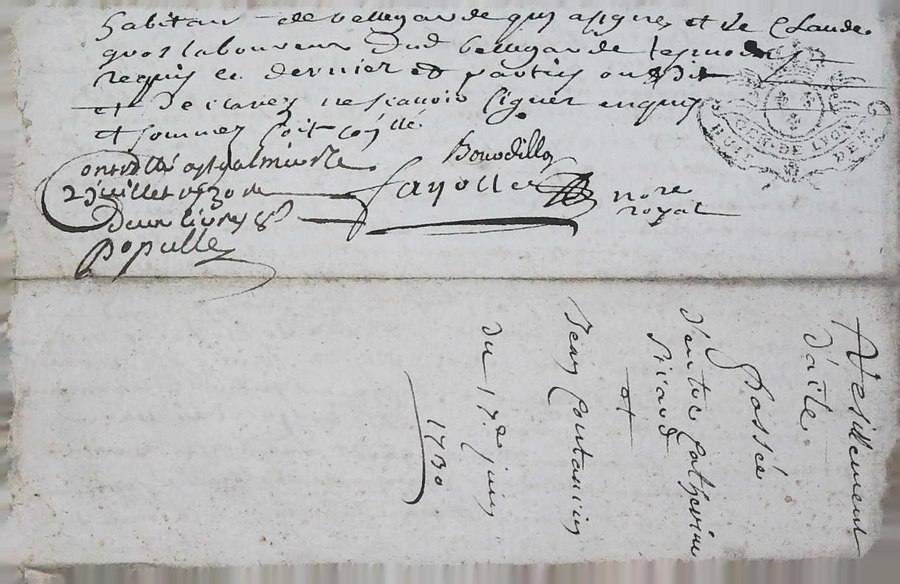 habitant de bellegarde qui a signé, et de Claude
gros laboureur dud bellegarde tesmoins
requis ce dernier et parties ont dit
et declarez ne scavoir signer enquis
et sommez soit contllé.
Bourdillon
Contrllé a st galmier le
2 Juillet 1730 R
Deux livres 8s
populle
fayolle
nore
royal
GEN. DE LYON
HUIT DEN.
Resillement
d'acte
Passée
Entre Catherine
Sicard
et
Jean Coutancin
du 17e juin
1730